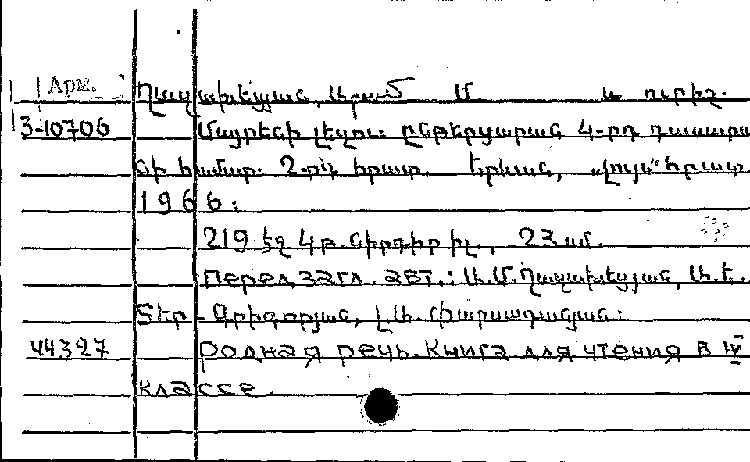 Арм. Ղազախեցյան, Արամ Մ և ուրիշ.
3-10706 Մայրենի լեզու: ընթերցարան 4-րդ դասարա
նի համար. 2-րդ հրատ. Երևան, „Լույս" հրատ
1966:
219 էջ 4 թ. ներդիր իլ., 23 սմ.
перед загл. авт.: Ա.Մ. Ղազախեցյան, Ա.Ե.
Տեր-Գրիգորյան, Լ
44327 Родная речь. Книга для чтения в IV
классе.